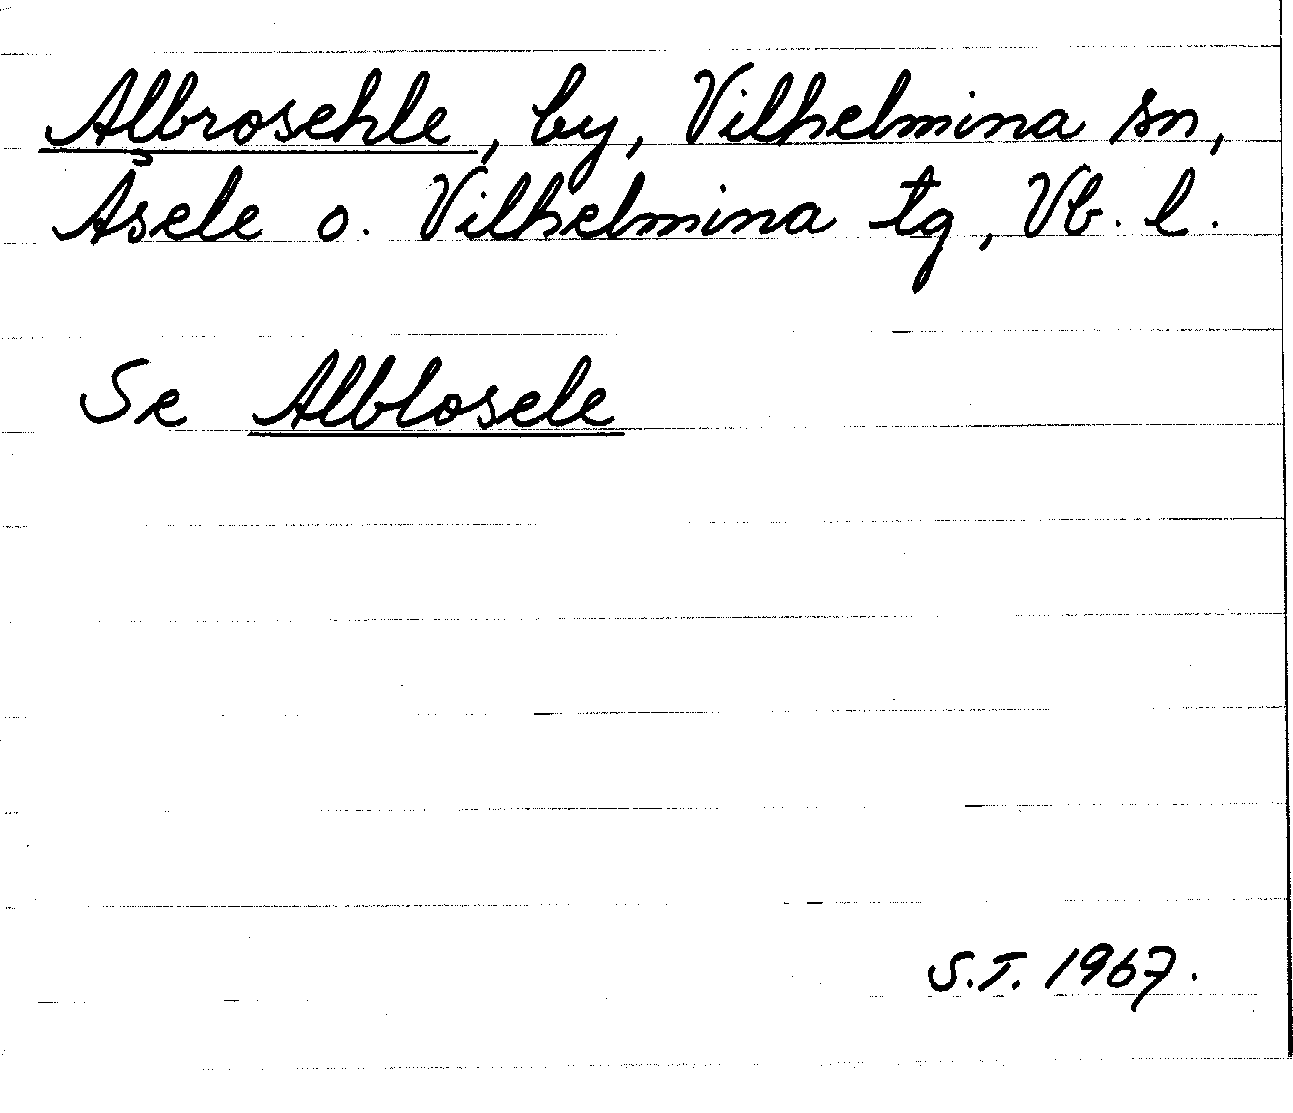 Albrosehle, by, Vilhelmina sn,
Åsele o. Vilhelmina tg, Vb. l.
Se Alblosele
S.T. 1967.